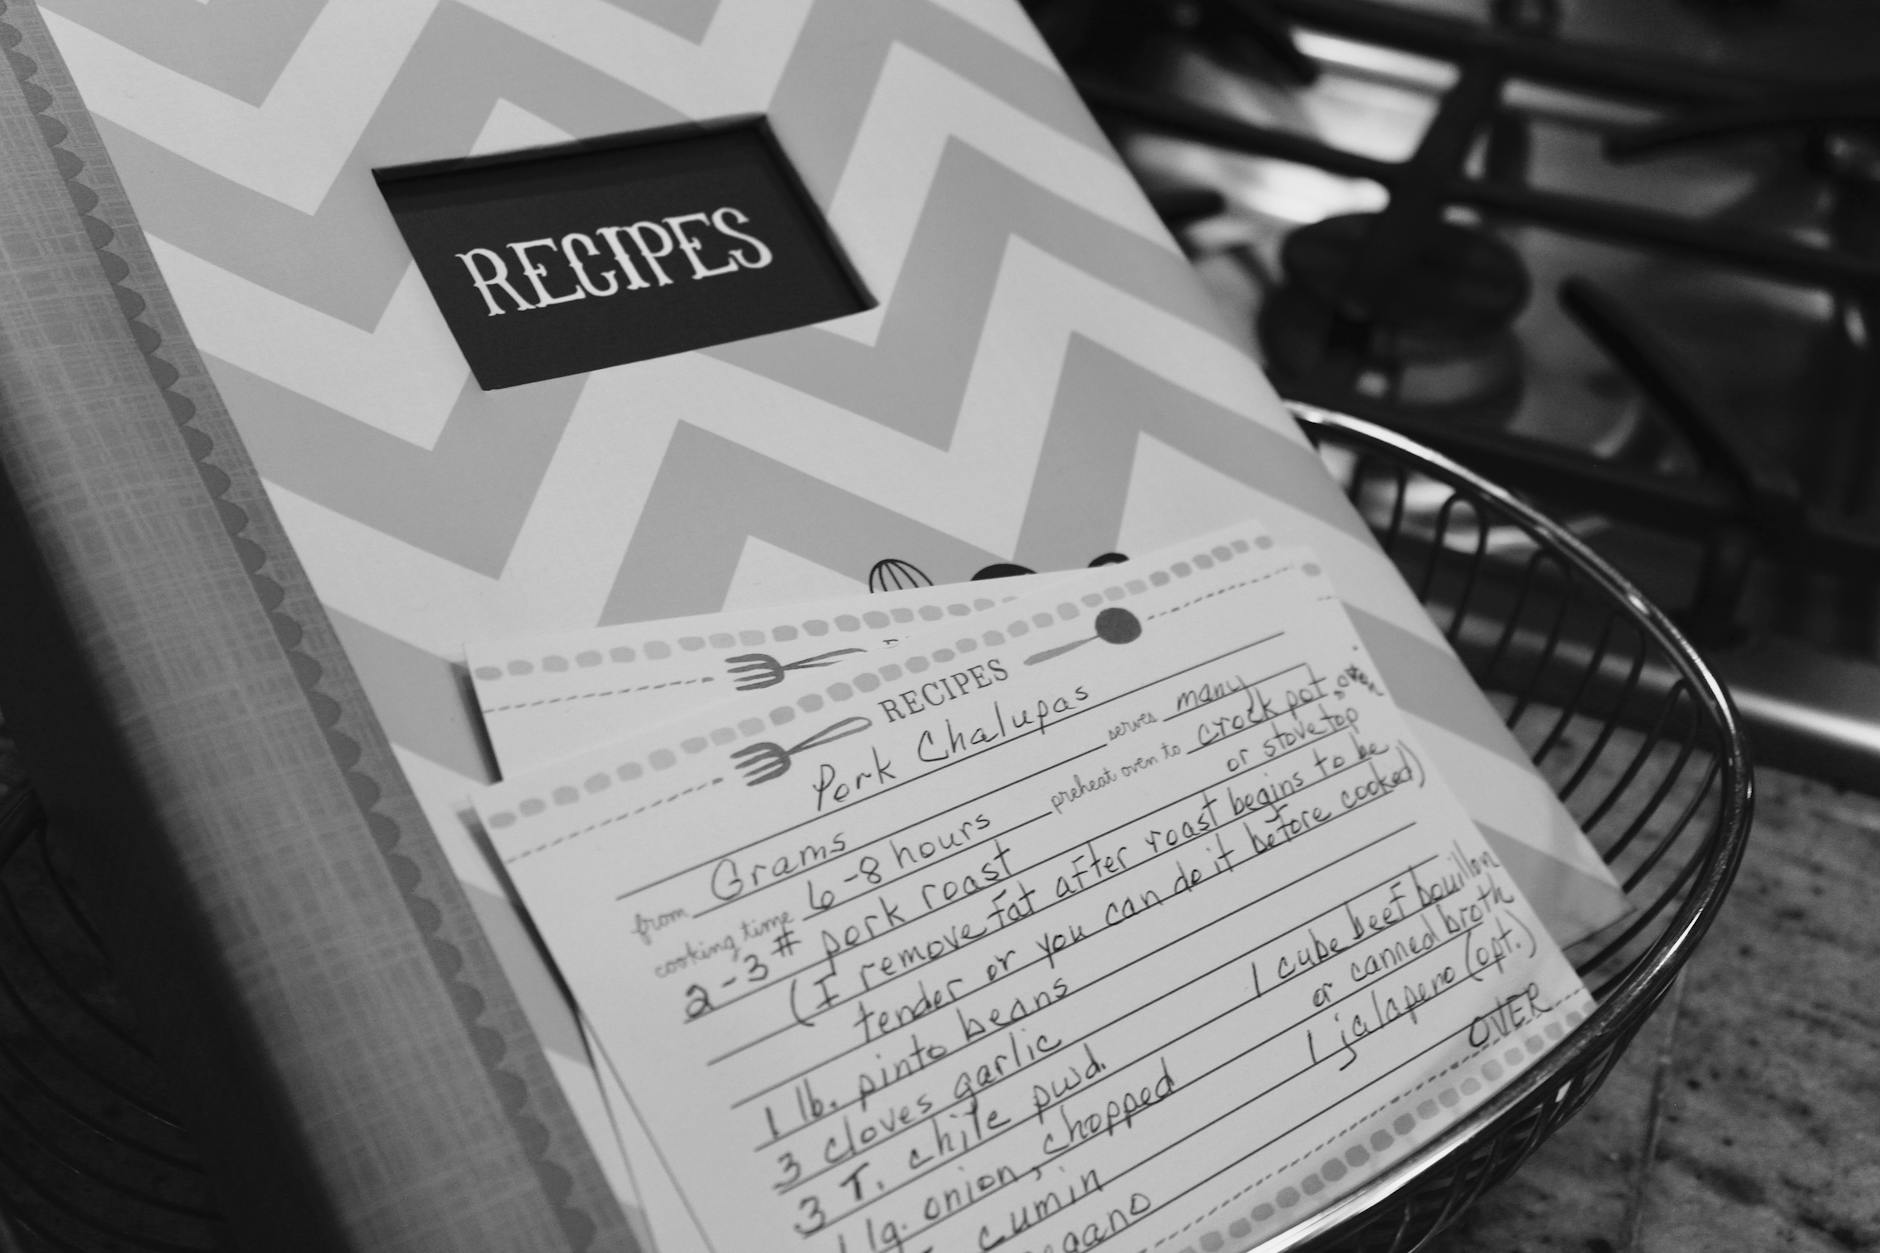 RECIPES
RECIPES
Pork Chalupas
from Grams serves many
cooking time 6-8 hours preheat oven to crock pot, oven
or stove top
2-3# pork roast
(I remove fat after roast begins to be
tender or you can do it before cooked)
1 lb. pinto beans
3 cloves garlic 1 cube beef bouillon
3 T. chile pwd. or canned broth
1 lg. onion, chopped 1 jalapeno (opt.)
cumin OVER